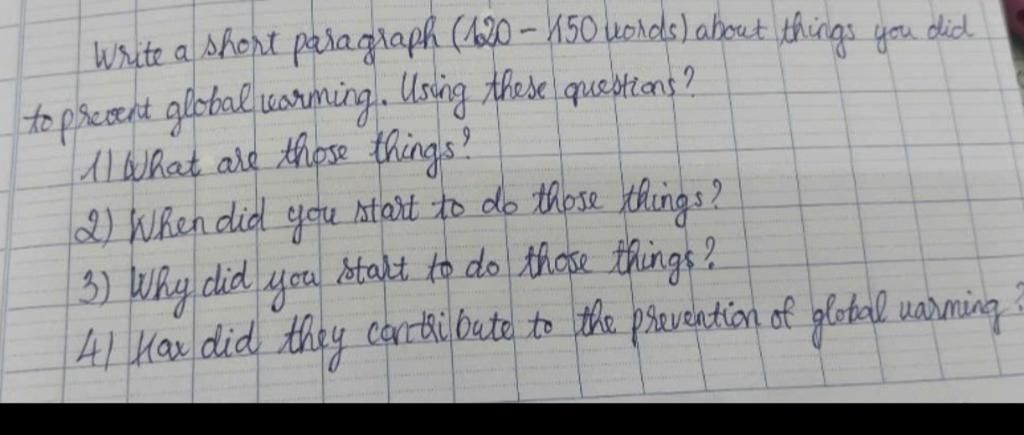 Write a short paragraph (120 - 150 words) about things you did
to prevent global warming. Using these questions?
1) What are those things?
2) When did you start to do those things?
3) Why did you start to do those things?
4) How did they contribute to the prevention of global warming?